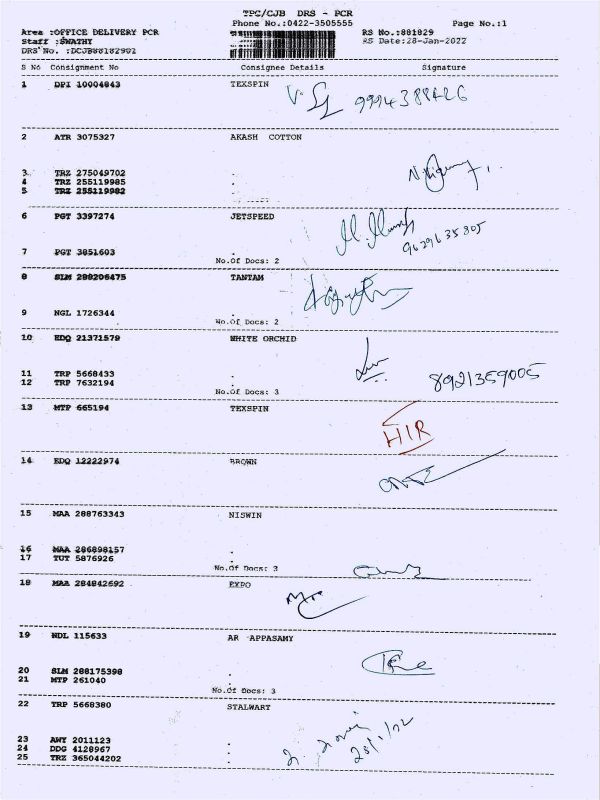 TPC/CJB DRS - PCR
Phone No.:0422-3505555 Page No.:1
Area :OFFICE DELIVERY PCR RS No.:881829
Staff :SWATHY RS Date:28-Jan-2022
DRS No. :DCJB88182902
S No Consignment No Consignee Details Signature
1 DPI 10004843 TEXSPIN
9994388426
2 ATR 3075327 AKASH COTTON
3 TRZ 275049702 .
4 TRZ 255119985 .
5 TRZ 255119982 .
6 PGT 3397274 JETSPEED
9629635805
7 PGT 3851603 .
No.Of Docs: 2
8 SLM 288206475 TANTAM
9 NGL 1726344 .
No.Of Docs: 2
10 EDQ 21371579 WHITE ORCHID
11 TRP 5668433 .
12 TRP 7632194 .
8921359005
No.Of Docs: 3
13 MTP 665194 TEXSPIN
HIR
14 EDQ 12222974 BROWN
15 MAA 288763343 NISWIN
16 MAA 286898157 .
17 TUT 5876926 .
No.Of Docs: 3
18 MAA 284842692 EXPO
19 NDL 115633 AR APPASAMY
20 SLM 288175398 .
21 MTP 261040 .
No.Of Docs: 3
22 TRP 5668380 STALWART
23 AWY 2011123 .
24 DDG 4128967 .
25 TRZ 365044202 .